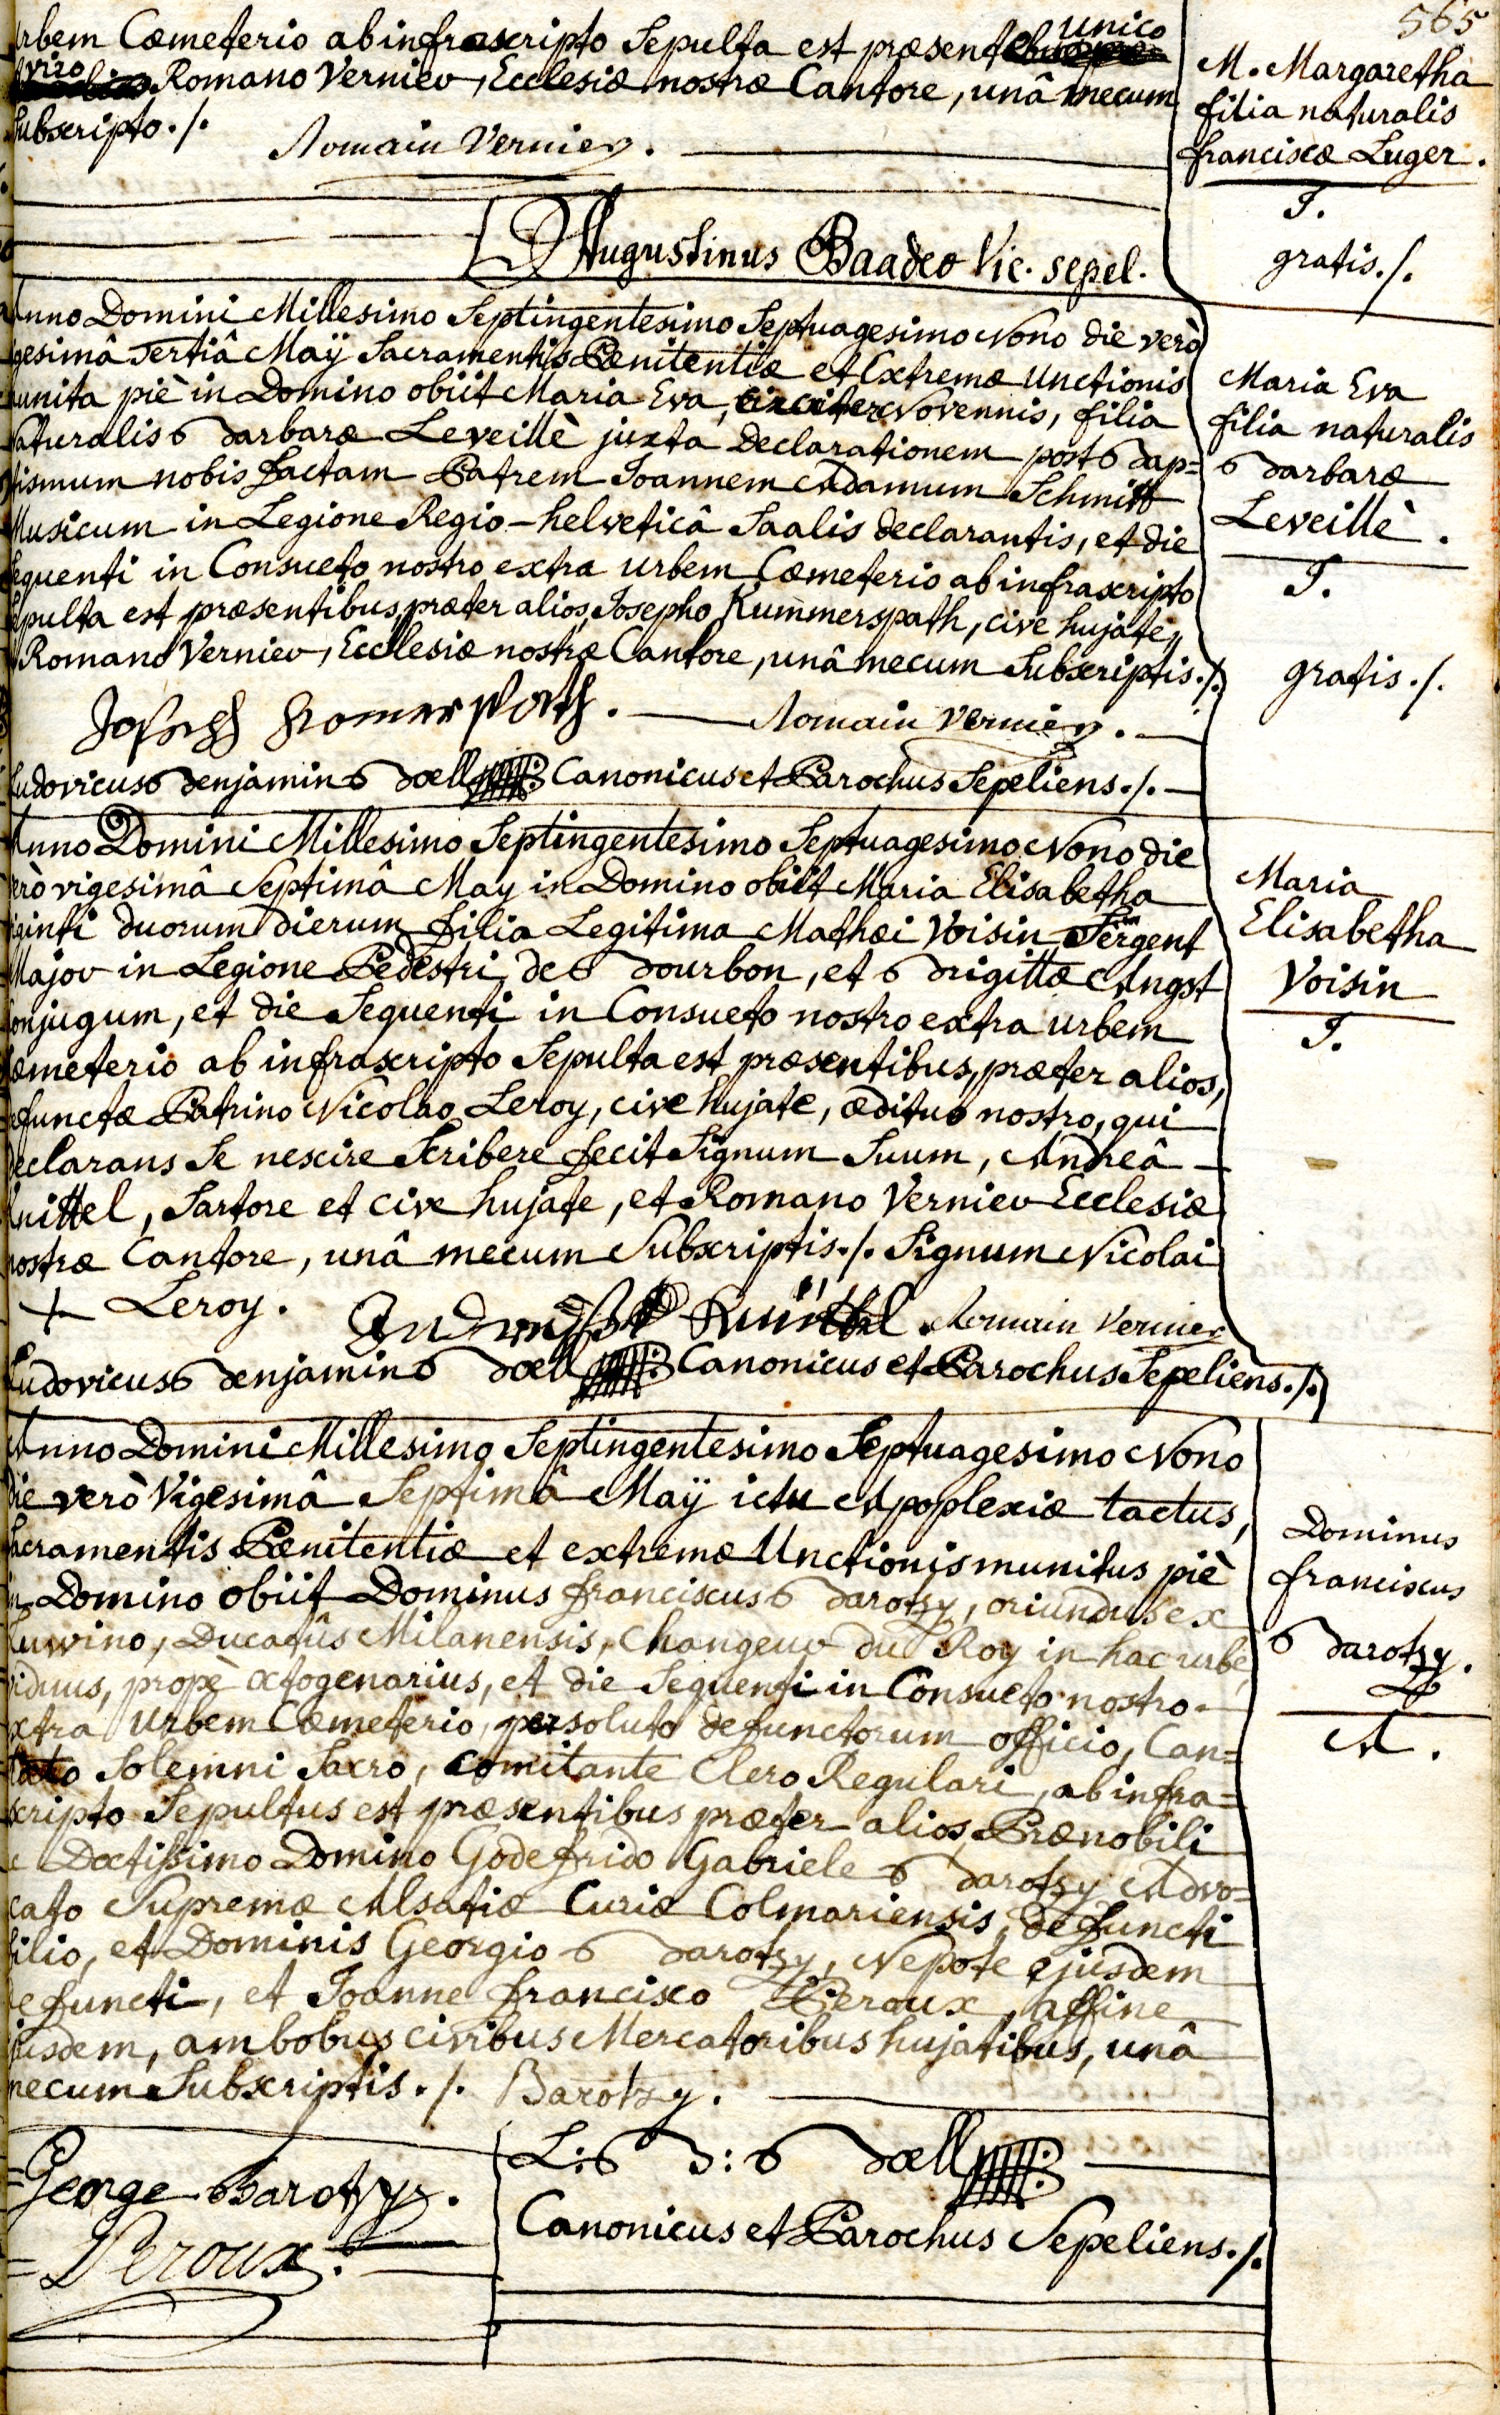 565
urbem Cœmeterio ab infrascripto Sepulta est præsente unico
viro Romano Vernier, Ecclesiæ nostræ Cantore, unâ mecum
Subscripto./.
Romain Vernier.
Augustinus Baader Vic. sepel.
M. Margaretha
filia naturalis
franciscæ Luger.
I.
gratis./.
Anno Domini Millesimo Septingentesimo Septuagesimo Nono die verò
gesimâ Tertiâ Maÿ Sacramentis Pœnitentiæ et Extremæ Unctionis
munita piè in Domino obiit Maria Eva, circiter Novennis, filia
Naturalis Barbaræ Leveillè juxta Declarationem post Bap=
tismum nobis factam Patrem Joannem Adamum Schmitt
Musicum in Legione Regio-helveticâ Saalis declarantis, et die
Sequenti in Consueto nostro extra urbem Cœmeterio ab infrascripto
Sepulta est præsentibus, præter alios, Josepho Kummerspath, cive hujate,
Romano Vernier, Ecclesiæ nostræ Cantore, unâ mecum Subscriptis./.
Joseph Kromerspath. Romain Vernier.
Ludovicus Benjamin Boell Canonicus et Parochus Sepeliens./.
Maria Eva
filia naturalis
Barbaræ
Leveillè.
I.
gratis./.
Anno Domini Millesimo Septingentesimo Septuagesimo Nono die
verò vigesimâ Septimâ May in Domino obiit Maria Elisabetha
viginti duorum dierum filia Legitima Mathæi Voisin Sergent
Major in Legione Pedestri de Bourbon, et Brigittæ Angst
Conjugum, et die Sequenti in Consueto nostro extra urbem
Cœmeterio ab infrascripto Sepulta est præsentibus, præter alios,
defunctæ Patrino Nicolao Leroy, cive hujate, ædituo nostro, qui
declarans Se nescire Scribere fecit Signum Suum, Andreâ
Knittel, Sartore et cive hujate, et Romano Vernier Ecclesiæ
nostræ Cantore, unâ mecum Subscriptis./. Signum Nicolai
+ Leroy. Knittel Romain Vernier
Ludovicus Benjamin Boell Canonicus et Parochus Sepeliens./.
Maria
Elisabetha
Voisin
I.
Anno Domini Millesimo Septingentesimo Septuagesimo Nono
die verò Vigesimâ Septimâ Maÿ ictu Apoplexiæ tactus,
Sacramentis Pœnitentiæ et extremæ Unctionis munitus piè
in Domino obiit Dominus franciscus Barotzy, oriundus ex
Luwino, Ducatûs Milanensis, Changeur du Roy in hac urbe,
viduus, propè octogenarius, et die Sequenti in Consueto nostro
extra Urbem Cœmeterio, persoluto defunctorum officio, Can=
tato Solemni Sacro, Comitante Clero Regulari, ab infra=
scripto Sepultus est præsentibus præter alios, Prænobili
ac Doctissimo Domino Godefrido Gabriele Barotzy Advo=
cato Supremæ Alsatiæ Curiæ Colmariensis, defuncti
filio, et Dominis Georgio Barotzy, Nepote ejusdem
defuncti, et Joanne francisco Peroux, affine
ejusdem, ambobus civibus Mercatoribus hujatibus, unâ
mecum Subscriptis./. Barotzy.
George Barotzy.
Peroux.
L: B: Boell
Canonicus et Parochus Sepeliens./.
Dominus
franciscus
Barotzy.
A.